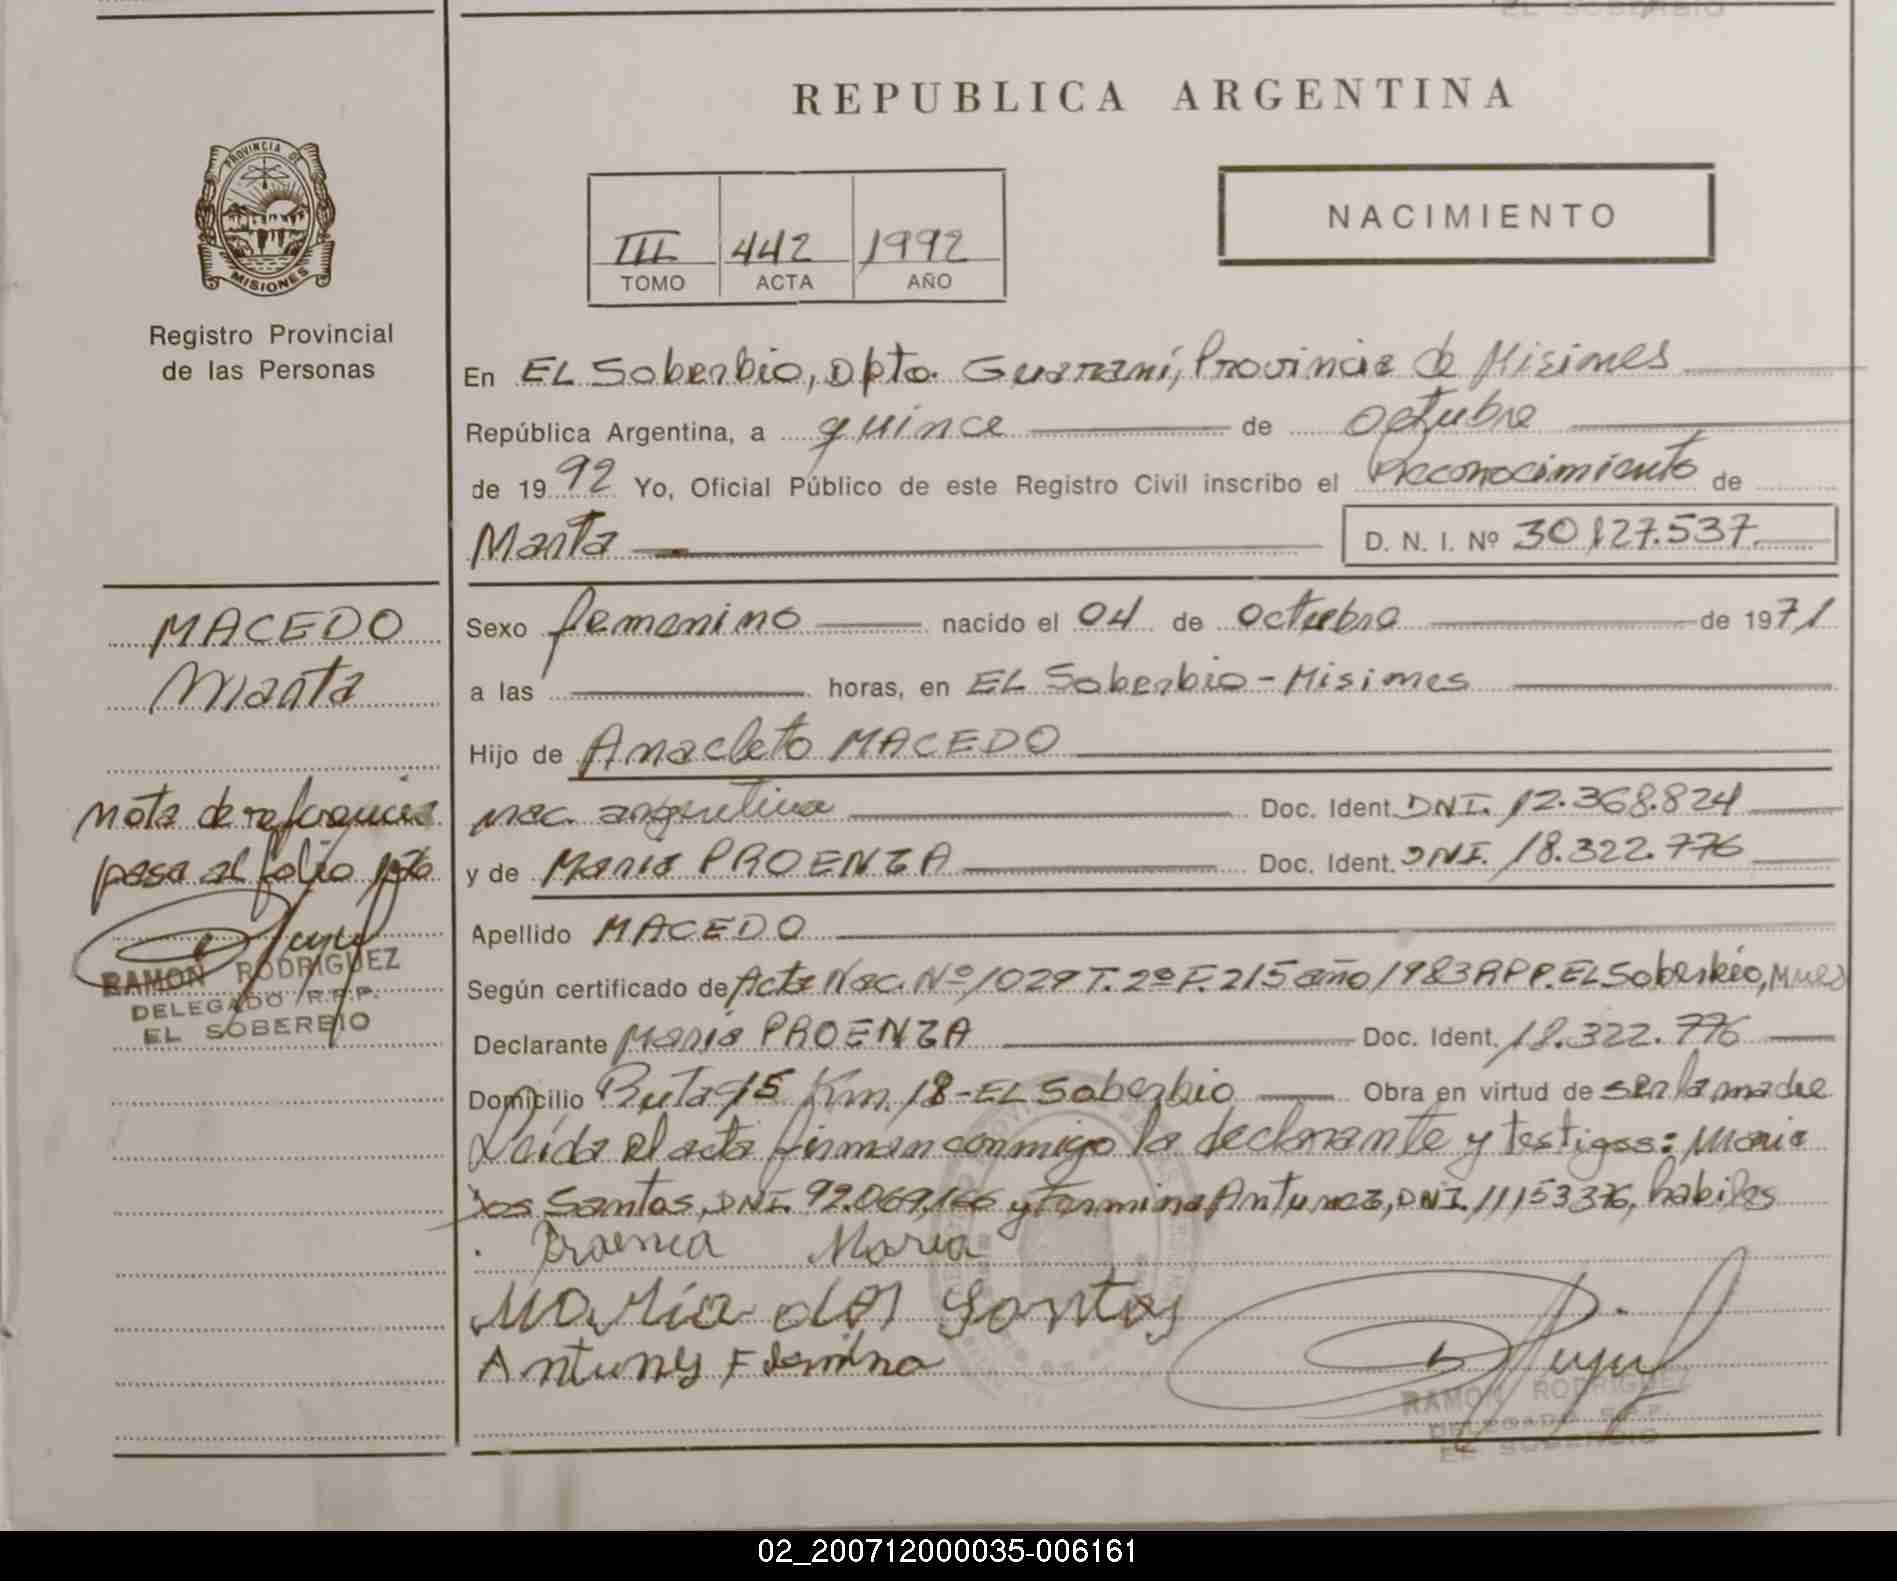 REPUBLICA ARGENTINA
PROVINCIA DE
MISIONES
Registro Provincial
de las Personas
III 442 1992
TOMO ACTA AÑO
NACIMIENTO
En EL Soberbio, Dpto. Guarani, Provincia de Misiones
República Argentina, a quince de octubre
de 1992 Yo, Oficial Público de este Registro Civil inscribo el Reconocimiento de
Marta D. N. I. Nº 30.127.537.
MACEDO
Marta
Sexo femenino nacido el 04 de octubre de 1971
a las horas, en EL Soberbio - Misiones
Hijo de Anacleto MACEDO
nac. argentina Doc. Ident. DNI. 12.368.824
y de Maria PROENZA Doc. Ident. DNI. 18.322.776
Apellido MACEDO
Nota de referencia
pasa al folio
RAMON RODRIGUEZ
DELEGADO R.P.P.
EL SOBERBIO
Según certificado de Acta Nac. Nº 1029 T. 2º F. 215 año 1983 RPP. EL Soberbio, Mnes
Declarante Maria PROENZA Doc. Ident. 18.322.776
Domicilio Ruta 15 Km. 18 - EL Soberbio Obra en virtud de ser la madre
Leida el acta firman conmigo la declarante y testigos: Maria
dos Santos, DNI. 92.069.166 y Fermina Antunez, DNI. 11153376, habiles
Proenca Maria
Maria dos Santos
Antunes Fermina
RAMON RODRIGUEZ
DELEGADO R.P.P.
EL SOBERBIO
02_200712000035-006161